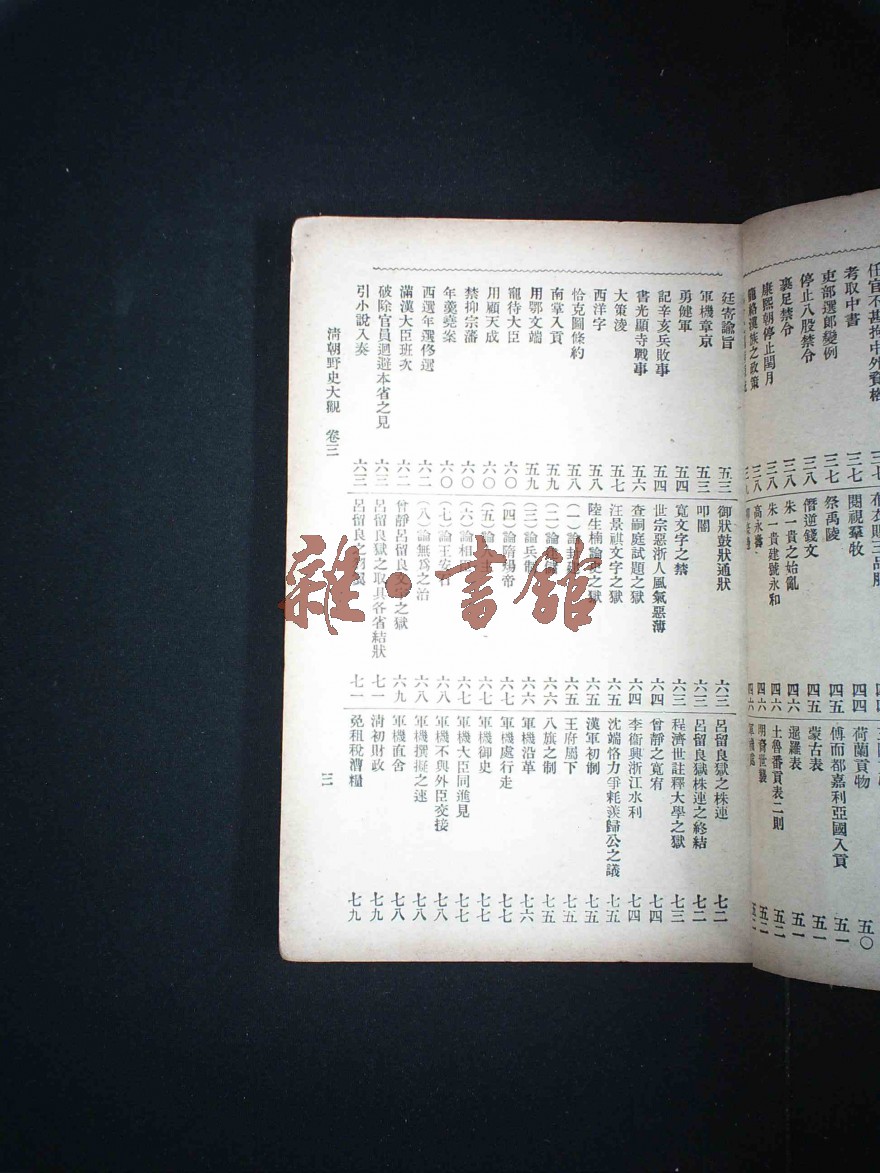 任官不甚拘中外資格 三七
考取中書 三七
吏部選郎變例 三七
停止八股禁令 三八
裹足禁令 三八
康熙朝停止閏月 三八
籠絡漢族之政策 三八
布衣賜三品服 四四
閱視羣牧 四四
祭禹陵 四五
僭逆錢文 四五
朱一貴之始亂 四六
朱一貴建號永和 四六
高永壽 四六
荷蘭貢物 五〇
傅而都嘉利亞國入貢 五一
蒙古表 五一
暹羅表 五一
土魯番貢表二則 五二
明裔世襲 五二
廷寄諭旨 五三
軍機章京 五三
勇健軍 五四
記辛亥兵敗事 五四
書光顯寺戰事 五六
大策淩 五七
西洋字 五八
恰克圖條約 五八
南掌入貢 五九
用鄂文端 五九
寵待大臣 六〇
用顧天成 六〇
禁抑宗藩 六〇
年羹堯案 六〇
西選年選佟選 六二
滿漢大臣班次 六二
破除官員迴避本省之見 六三
引小說入奏 六三
御狀鼓狀通狀 六三
叩閽 六三
寬文字之禁 六三
世宗惡浙人風氣惡薄 六四
查嗣庭試題之獄 六四
汪景祺文字之獄 六五
陸生楠論史之獄 六五
(一)論封建 六五
(二)論建儲 六六
(三)論兵制 六六
(四)論隋煬帝 六七
(五)論人主 六七
(六)論相臣 六七
(七)論王安石 六八
(八)論無爲之治 六八
曾靜呂留良文字之獄 六九
呂留良獄之取具各省結狀 七一
呂留良之 七一
呂留良獄之株連 七二
呂留良獄株連之終結 七二
程濟世註釋大學之獄 七三
曾靜之寬宥 七四
李衞興浙江水利 七四
沈端恪力爭耗羨歸公之議 七五
漢軍初制 七五
王府屬下 七五
八旗之制 七五
軍機沿革 七六
軍機處行走 七七
軍機御史 七七
軍機大臣同進見 七七
軍機不與外臣交接 七八
軍機撰擬之速 七八
軍機直舍 七八
清初財政 七九
免租稅漕糧 七九
清朝野史大觀 卷三
三
雜·書館